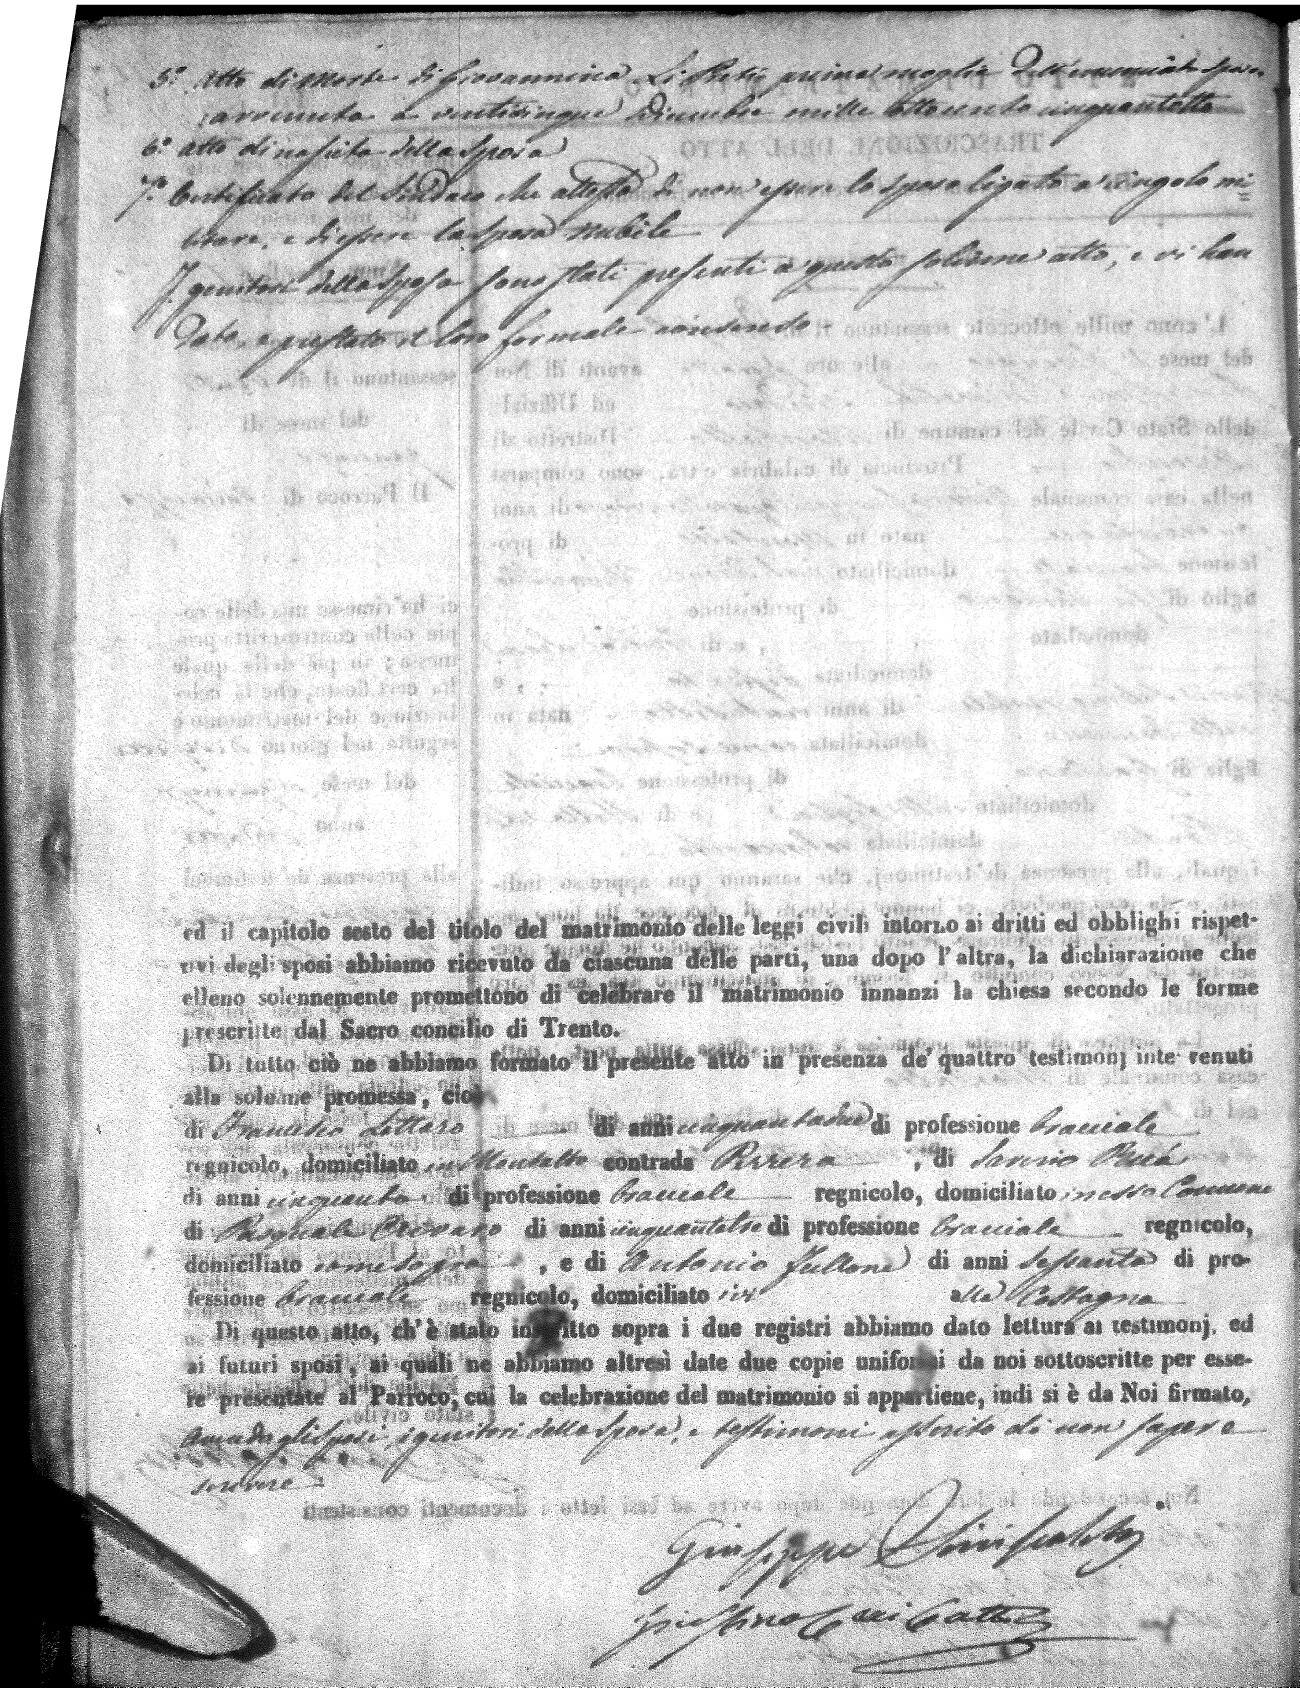 5.° Atto di Morte di Giovannina Li Preti prima moglie dell'enunciato sposo
avvenuta a venticinque Dicembre mille ottocento cinquantotto
6.° Atto di nascita della Sposa
7.° Certificato del Sindaco che attesta di non essere lo sposo ligato a vincolo mi=
litare, e di essere la sposa nubile
I genitori della Sposa sono stati presenti a questo solenne atto, e vi han
dato, e prestato il loro formale consenso
ed il capitolo sesto del titolo del matrimonio delle leggi civili intorno ai dritti ed obblighi rispet-
tivi degli sposi abbiamo ricevuto da ciascuna delle parti, una dopo l'altra, la dichiarazione che
elleno solennemente promettono di celebrare il matrimonio innanzi la chiesa secondo le forme
prescritte dal Sacro concilio di Trento.
Di tutto ciò ne abbiamo formato il presente atto in presenza de' quattro testimonj intervenuti
alla solenne promessa, cioè
di Francesco Lettaro di anni cinquantadue di professione bracciale
regnicolo, domiciliato in Montalto contrada , di
di anni cinquanta di professione bracciale regnicolo, domiciliato in esso Comune
di Pasquale di anni cinquantatre di professione bracciale regnicolo,
domiciliato come sopra , e di Antonio Fullone di anni sessanta di pro-
fessione bracciale regnicolo, domiciliato ivi alla Castagna
Di questo atto, ch'è stato inscritto sopra i due registri abbiamo dato lettura ai testimonj, ed
ai futuri sposi, ai quali ne abbiamo altresì date due copie uniformi da noi sottoscritte per esse-
re presentate al Parroco, cui la celebrazione del matrimonio si appartiene, indi si è da Noi firmato,
avendo gli sposi, i genitori della sposa, e testimoni asserito di non sapere
scrivere
Giuseppe